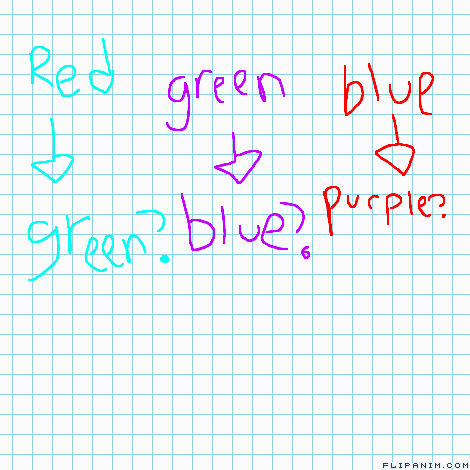 Red green blue
green? blue? purple?
FLIPANIM.COM